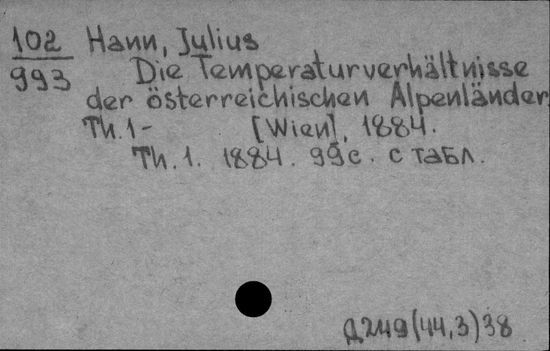 102 Hann, Julius
993 Die Temperaturverhältnisse
der österreichischen Alpenländer
Th.1- [Wien], 1884.
Th. 1. 1884. 99с. с табл.
Д249(44,3)38